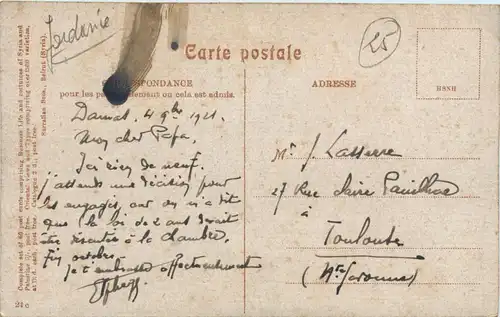 Jordanie
25
Carte postale
CORRESPONDANCE
pour les pays seulement ou cela est admis.
ADRESSE
Damas 4 9bre 1921
Mon cher Papa,
Ici rien de neuf.
J'attends une décision pour
les engagés, car on m'a dit
que la loi de 2 ans devait
être discutée à la chambre
fin octobre.
Je t'embrasse affectueusement
Mr J. Lasserre
27 Rue
à
Toulouse
(Hte Garonne)
Complete set of 48 post cards comprising Bedouin Life and costumes of Syria and
Sarrafian Bros., Beirut (Syria).
24 c